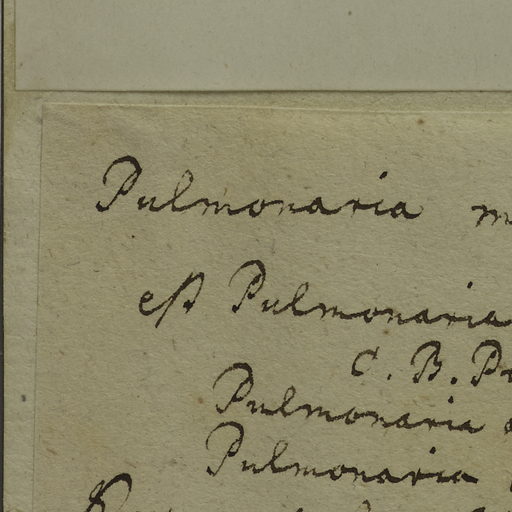 Pulmonaria
est Pulmonaria
C. B. P
Pulmonaria
Pulmonaria